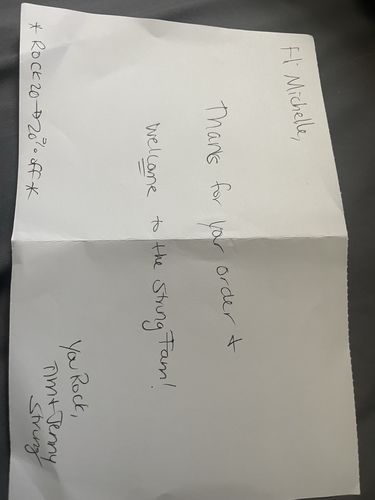 Hi Michelle,
Thanks for your order +
welcome to the Strung Fam!
You Rock,
Tim + Jenny
Strung
* ROCK20 → 20% off *